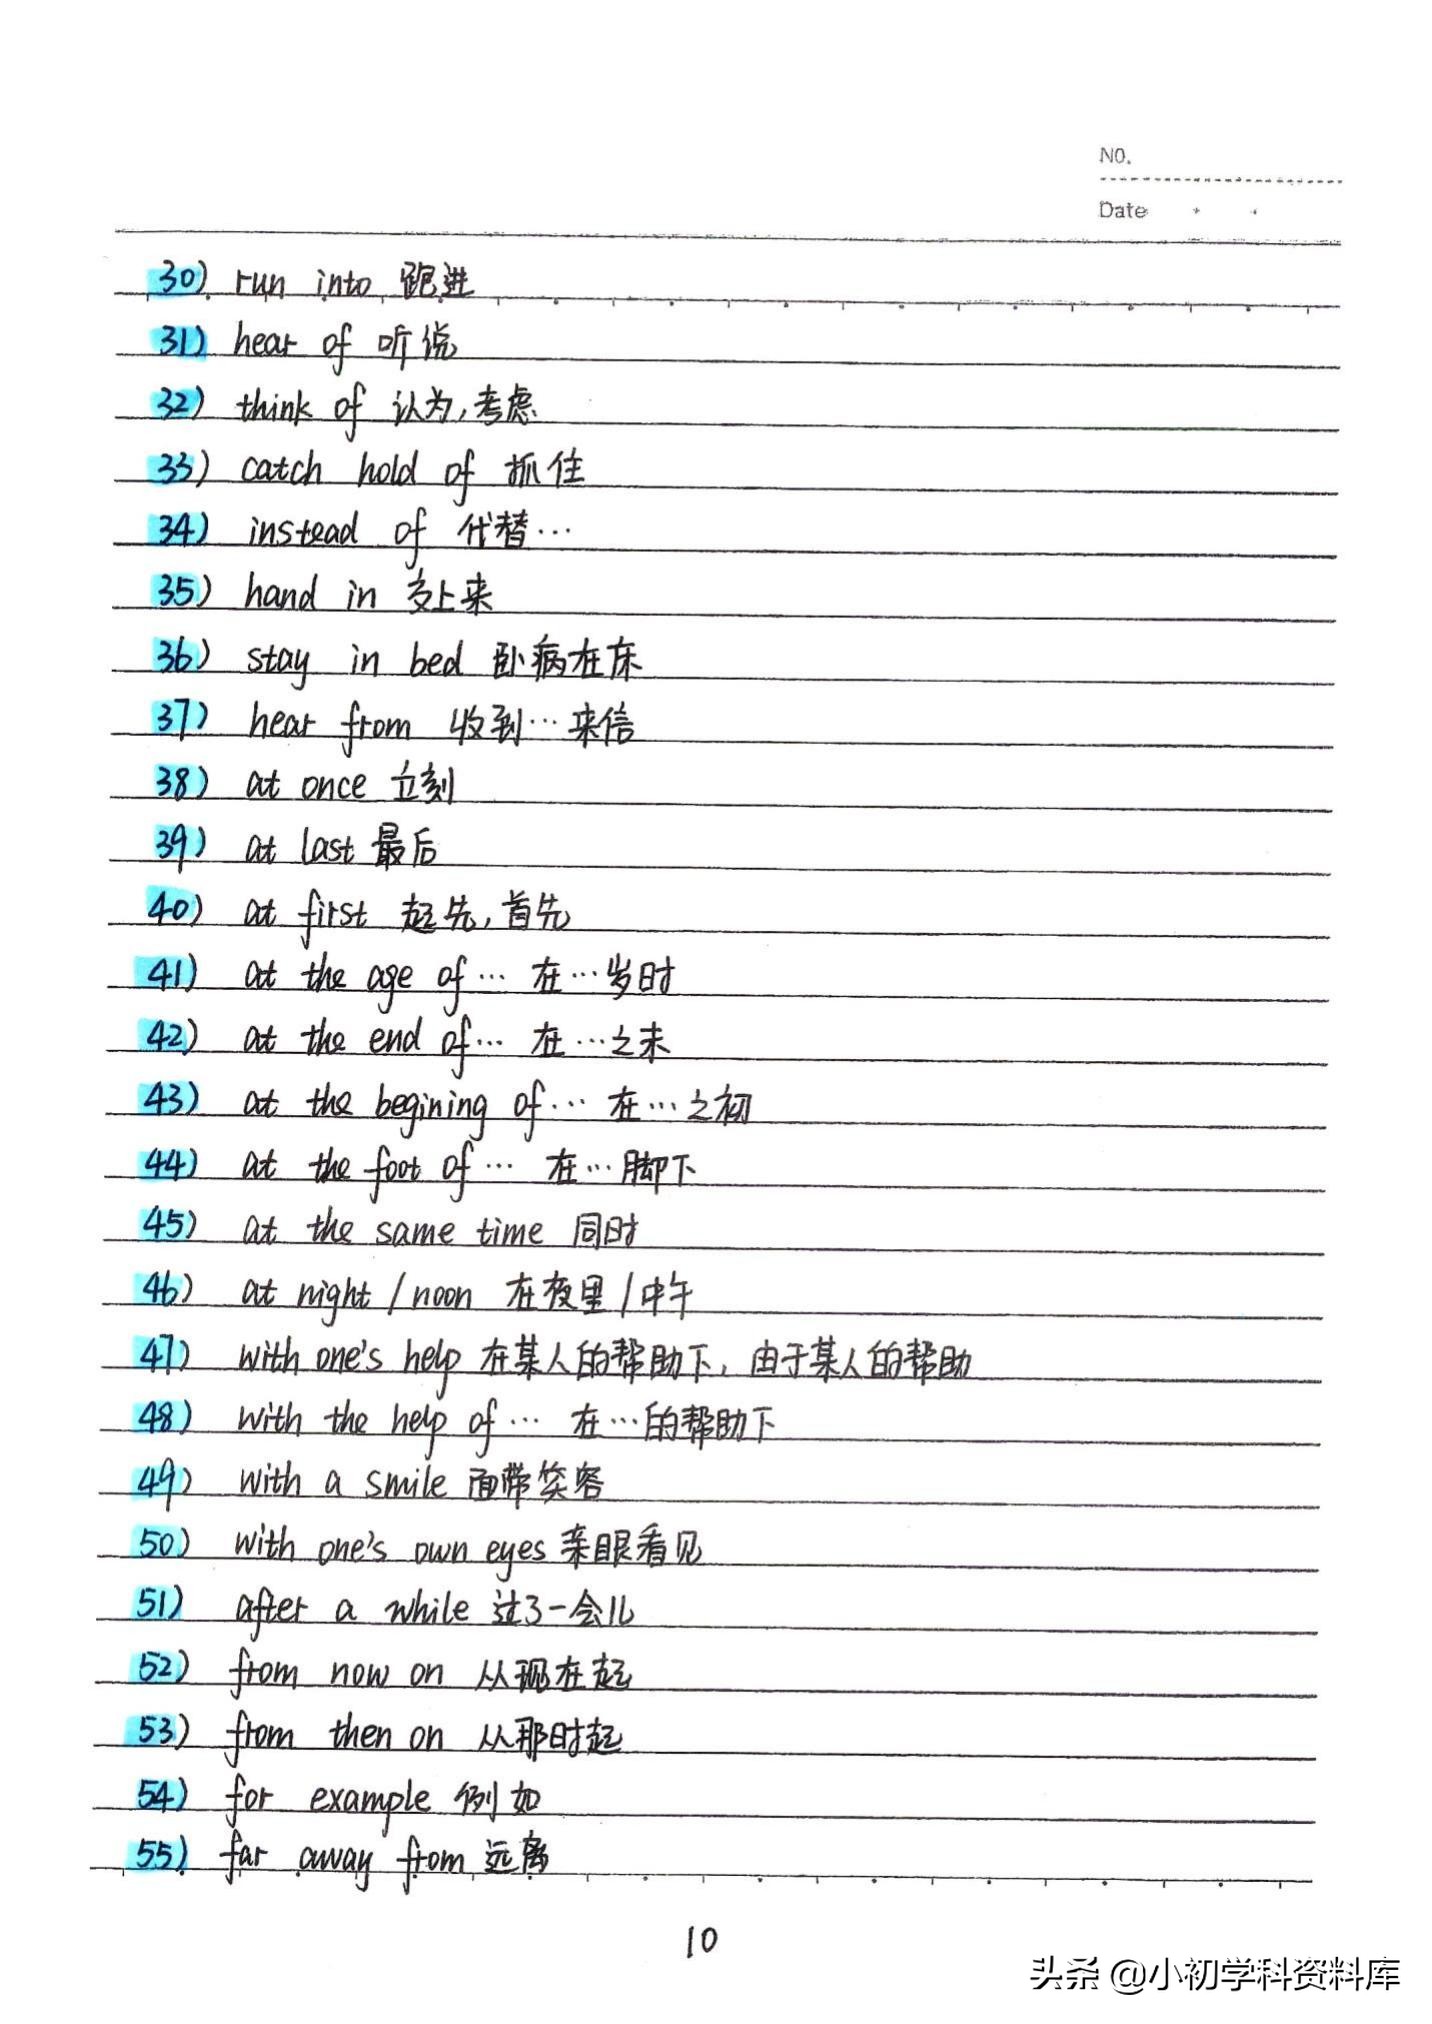 NO.
Date
30) run into 跑进
31) hear of 听说
32) think of 认为,考虑
33) catch hold of 抓住
34) instead of 代替…
35) hand in 交上来
36) stay in bed 卧病在床
37) hear from 收到…来信
38) at once 立刻
39) at last 最后
40) at first 起先,首先
41) at the age of… 在…岁时
42) at the end of… 在…之末
43) at the begining of… 在…之初
44) at the foot of… 在…脚下
45) at the same time 同时
46) at night / noon 在夜里 / 中午
47) with one's help 在某人的帮助下, 由于某人的帮助
48) with the help of… 在…的帮助下
49) with a smile 面带笑容
50) with one's own eyes 亲眼看见
51) after a while 过了一会儿
52) from now on 从现在起
53) from then on 从那时起
54) for example 例如
55) far away from 远离
10
头条 @小初学科资料库